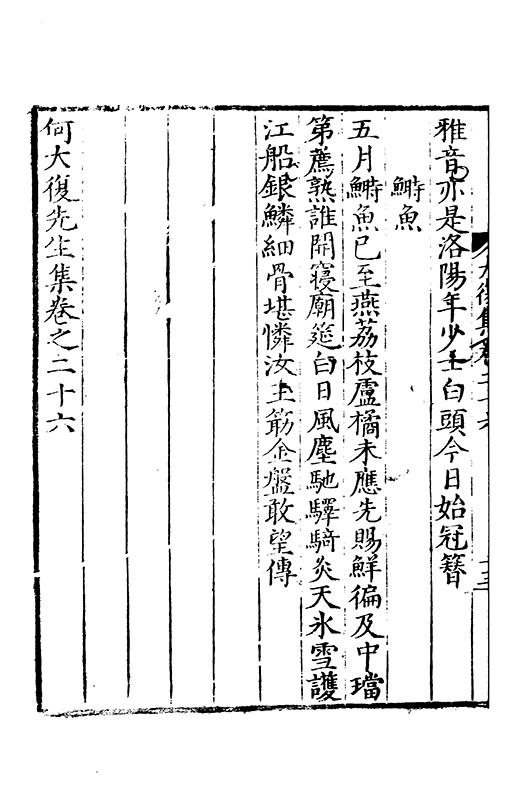 雅音亦是洛陽年少士白頭今日始冠簪
鰣魚
五月鰣魚已至燕荔枝盧橘未應先賜鮮徧及中璫
第薦熟誰開寢廟筵白日風塵馳驛騎炎天氷雪護
江船銀鱗細骨堪憐汝玉筯金盤敢望傳
何大復先生集卷之二十六